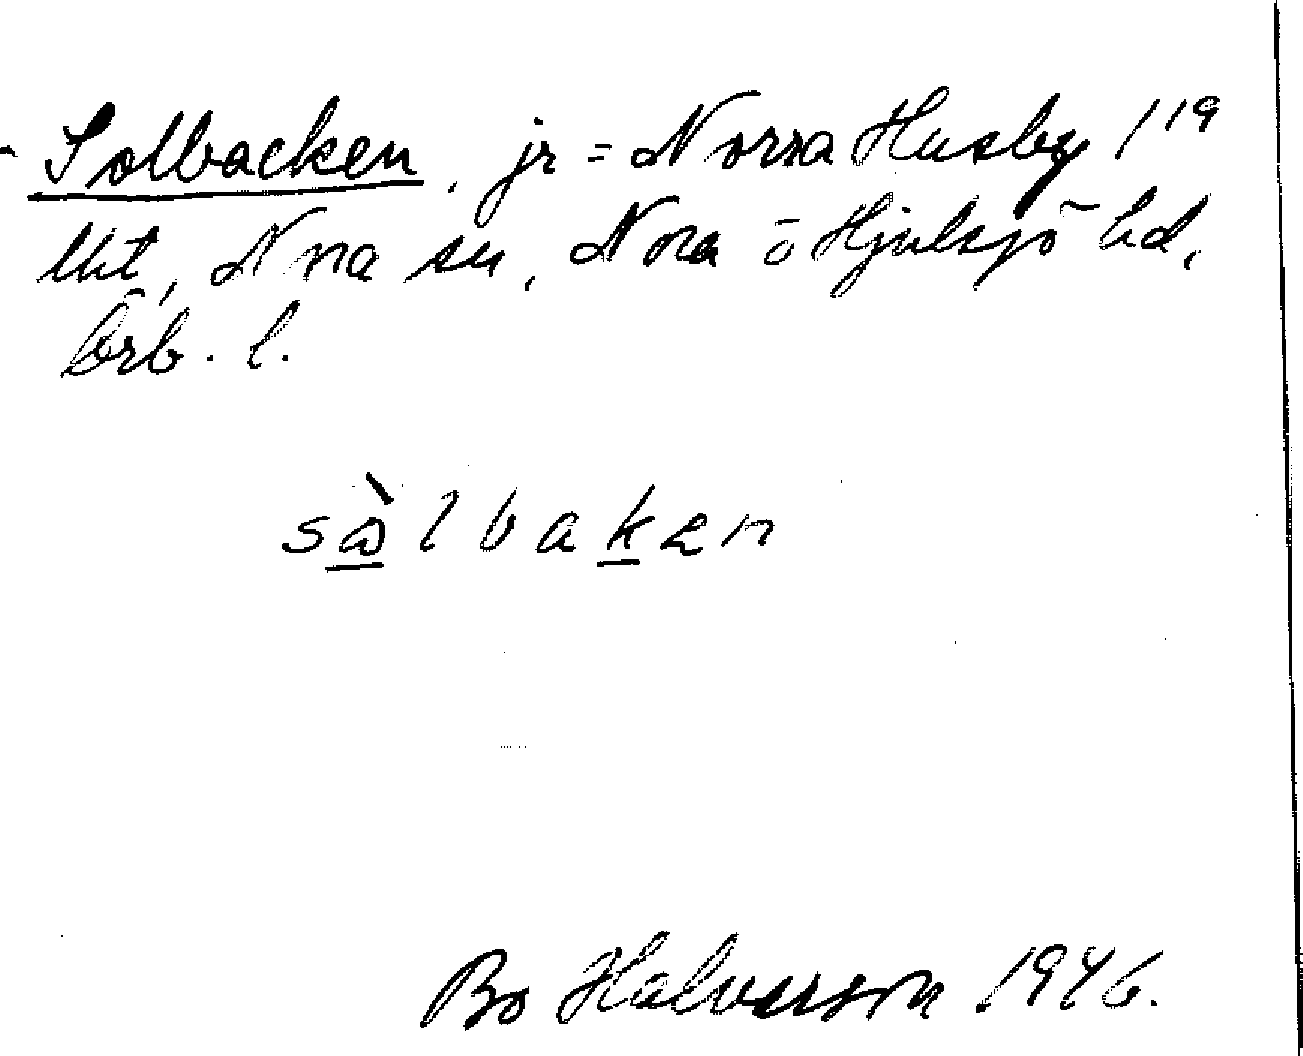 - Solbacken, jr = Norra Husby 1¹⁹
lht, Nora sn, Nora o Hjulsjö hd,
Örb. l.
sὼlbaken
Bo Halverson 1946.